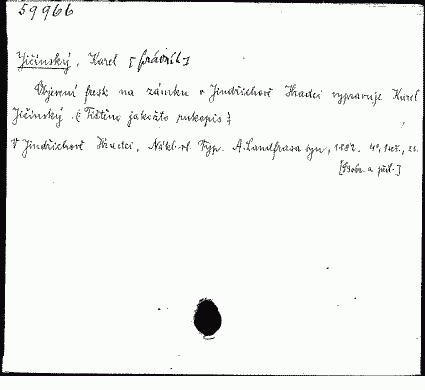 59966
Jičínský, Karel [právník]
Objevení fresk na zámku v Jindřichově Hradci vypravuje Karel
Jičínský. (Tištěno jakožto rukopis)
V Jindřichově Hradci, Nákl. vl. Typ. A. Landfrasa syn, 1882. 4°,